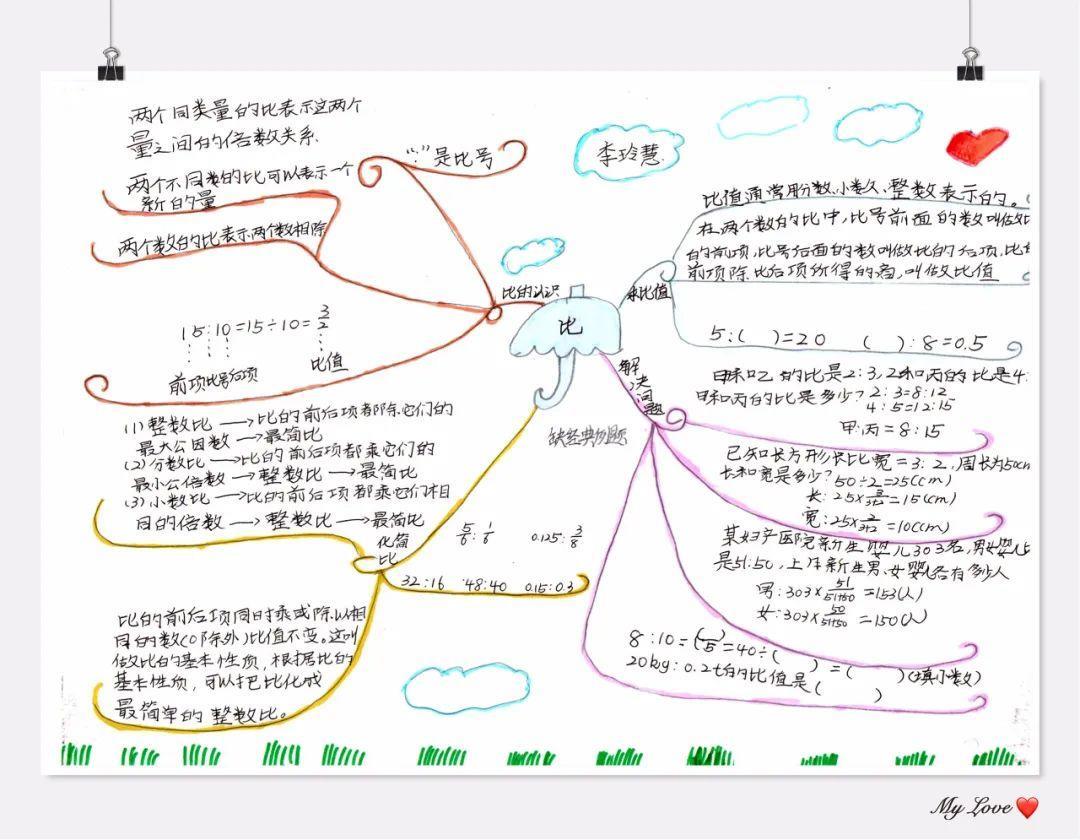 两个同类量的比表示这两个
量之间的倍数关系.
“:”是比号
两个不同类的比可以表示一个
新的量
两个数的比表示两个数相除
比的认识
15:10=15÷10=3/2
前项比号后项
比值
李玲慧
比
求比值
比值通常用分数、小数、整数表示的。
在两个数的比中,比号前面的数叫做比
的前项,比号后面的数叫做比的后项.比的
前项除比后项所得的商,叫做比值
5:( )=20 ( ):8=0.5
解决问题
甲和乙的比是2:3,乙和丙的比是4:
甲和丙的比是多少? 2:3=8:12
4:5=12:15
甲:丙=8:15
已知长方形长比宽=3:2,周长为50cm
长和宽是多少? 50÷2=25(cm)
长:25×3/3+2=15(cm)
宽:25×2/3+2=10(cm)
某妇产医院新生婴儿303名,男女婴儿
是51:50,上月新生男、女婴儿各有多少人
男:303×51/51+50=153(人)
女:303×50/51+50=150(人)
8:10=( )/5=40÷( )=( )(填小数)
20kg:0.2t的比值是( )
经典例题
(1)整数比→比的前后项都除它们的
最大公因数→最简比
(2)分数比→比的前后项都乘它们的
最小公倍数→整数比→最简比
(3)小数比→比的前后项都乘它们相
同的倍数→整数比→最简比
化简
比
5/6:1/6 0.125:3/8
32:16 48:40 0.15:0.3
比的前后项同时乘或除以相
同的数(0除外)比值不变。这叫
做比的基本性质,根据比的
基本性质,可以把比化成
最简单的整数比。
My Love